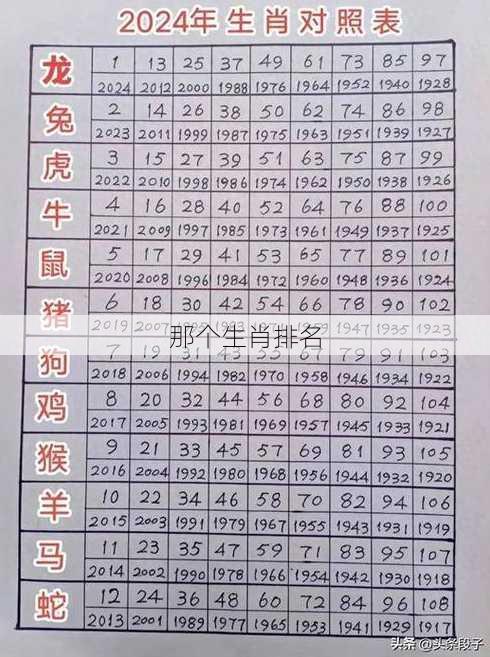 2024年生肖对照表
龙 1 13 25 37 49 61 73 85 97
2024 2012 2000 1988 1976 1964 1952 1940 1928
兔 2 14 26 38 50 62 74 86 98
2023 2011 1999 1987 1975 1963 1951 1939 1927
虎 3 15 27 39 51 63 75 87 99
2022 2010 1998 1986 1974 1962 1950 1938 1926
牛 4 16 28 40 52 64 76 88 100
2021 2009 1997 1985 1973 1961 1949 1937 1925
鼠 5 17 29 41 53 65 77 89 101
2020 2008 1996 1984 1972 1960 1948 1936 1924
猪 6 18 30 42 54 66 78 90 102
2019 2007 1947 1935 1923
那个生肖排名
狗 7 19 31 43 55 67 79 91 103
2018 2006 1994 1982 1970 1958 1946 1934 1922
鸡 8 20 32 44 56 68 80 92 104
2017 2005 1993 1981 1969 1957 1945 1933 1921
猴 9 21 33 45 57 69 81 93 105
2016 2004 1992 1980 1968 1956 1944 1932 1920
羊 10 22 34 46 58 70 82 94 106
2015 2003 1991 1979 1967 1955 1943 1931 1919
马 11 23 35 47 59 71 83 95 107
2014 2002 1990 1978 1966 1954 1942 1930 1918
蛇 12 24 36 48 60 72 84 96 108
2013 2001 1989 1977 1965 1953 1941 1929 1917
头条 @头条段子